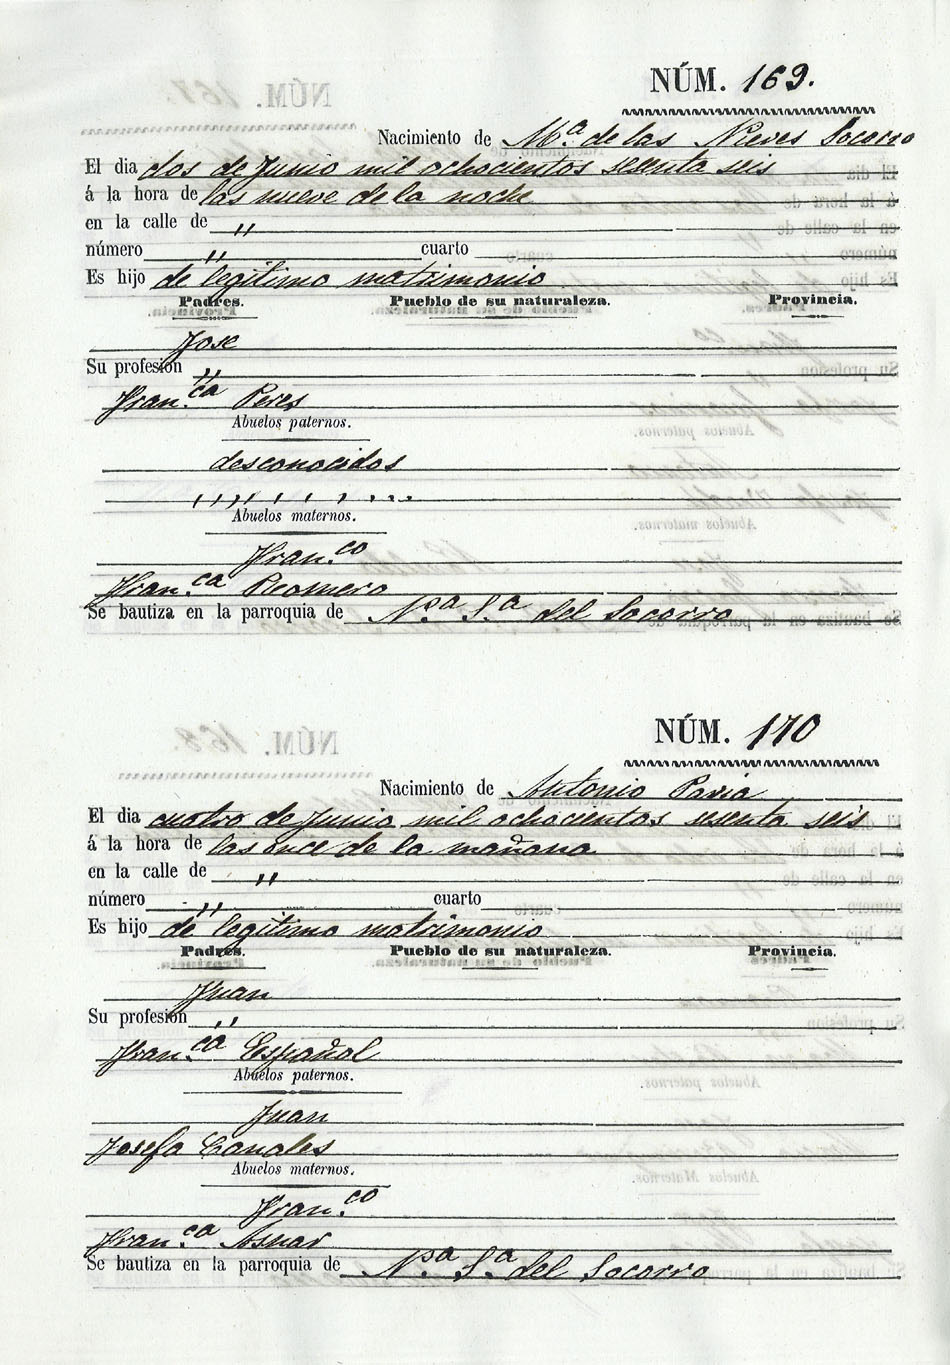 NÚM. 169.
Nacimiento de Mª de las Nieves Socorro
El dia dos de Junio mil ochocientos sesenta seis
á la hora de las nueve de la noche
en la calle de ,,
número ,, cuarto
Es hijo de legitimo matrimonio
Padres. Pueblo de su naturaleza. Provincia.
Jose
Su profesión ,,
Fran.ca Peres
Abuelos paternos.
desconocidos
,,,,,,,,...
Abuelos maternos.
Fran.co
Fran.ca Romero
Se bautiza en la parroquia de N.ª S.ª del Socorro
NÚM. 170
Nacimiento de Antonio Pavia
El dia cuatro de Junio mil ochocientos sesenta seis
á la hora de las once de la mañana
en la calle de ,,
número ,, cuarto
Es hijo de legitimo matrimonio
Padres. Pueblo de su naturaleza. Provincia.
Juan
Su profesión ,,
Fran.ca Español
Abuelos paternos.
Juan
Josefa Canales
Abuelos maternos.
Fran.co
Fran.ca Asnar
Se bautiza en la parroquia de N.ª S.ª del Socorro